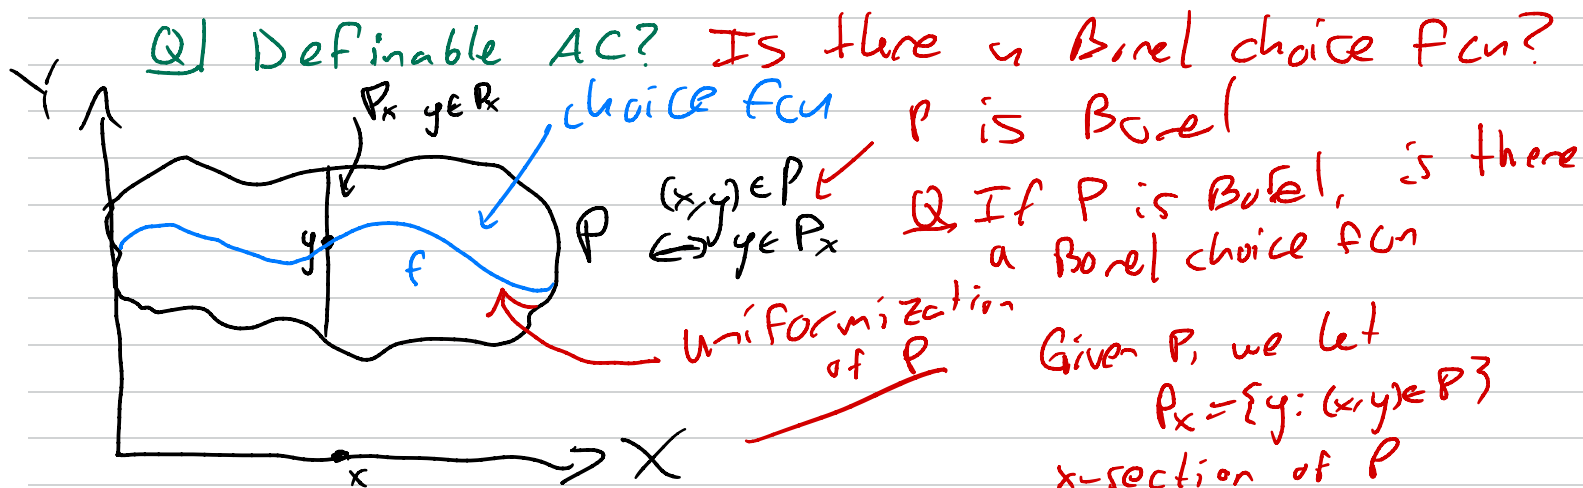 Q| Definable AC? Is there a Borel choice fcn?
Y
P_x y ∈ P_x
choice fcn
P is Borel
(x,y) ∈ P
↔ y ∈ P_x
Q If P is Borel, is there
a Borel choice fcn
P
y
f
uniformization
of P
Given P, we let
P_x = {y: (x,y) ∈ P}
x-section of P
X
x